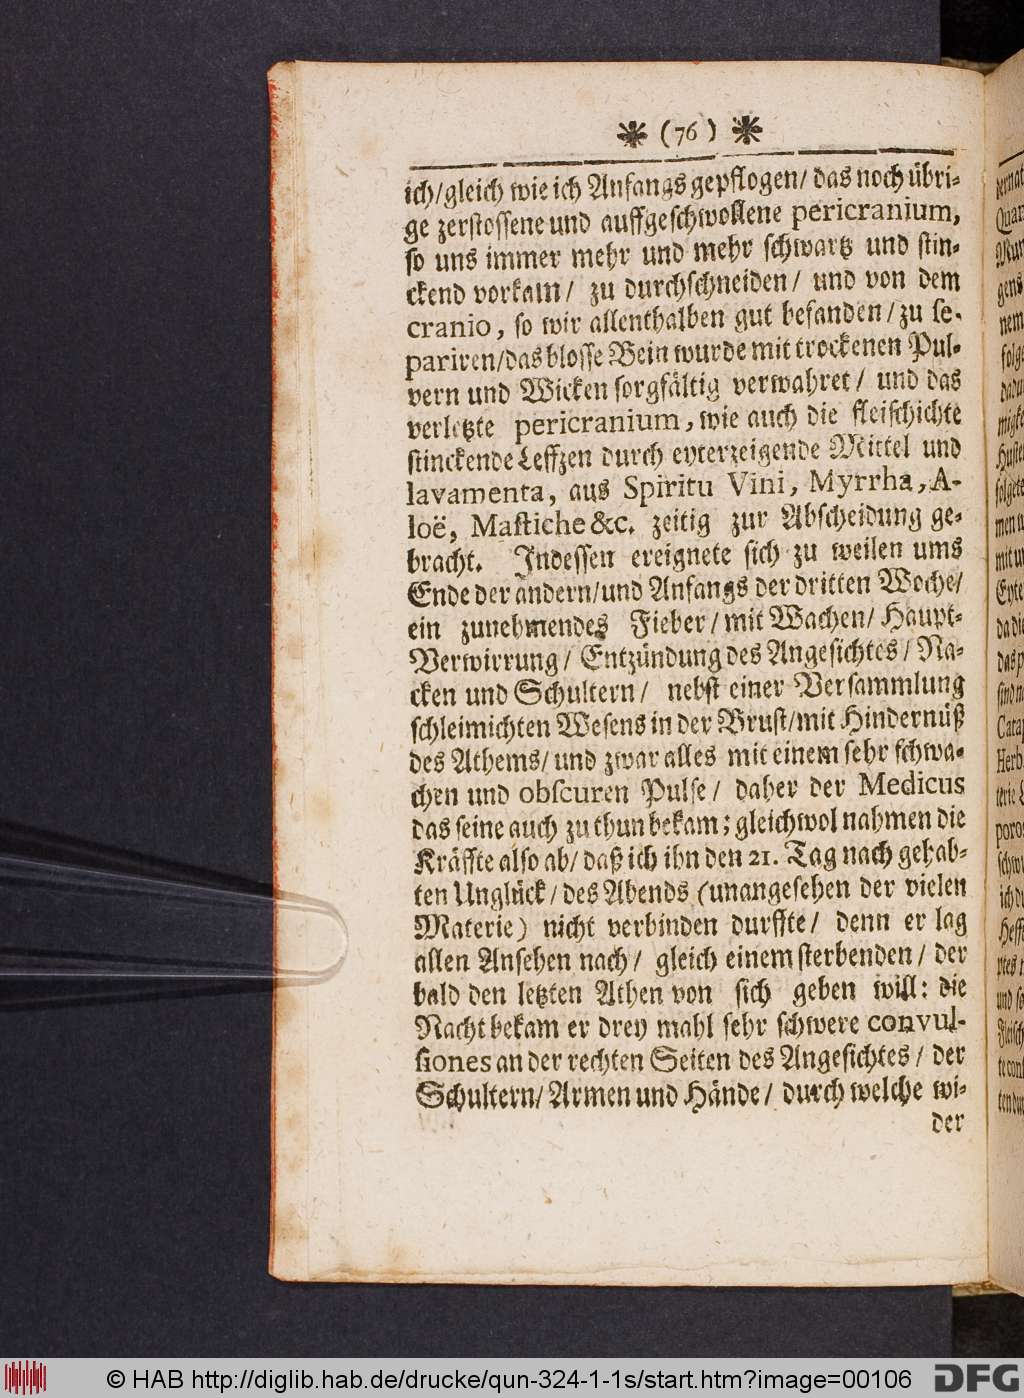 (76)
ich/gleich wie ich Anfangs gepflogen/ das noch übri-
ge zerstossene und auffgeschwollene pericranium,
so uns immer mehr und mehr schwartz und stin-
ckend vorkam/ zu durchschneiden/ und von dem
cranio, so wir allenthalben gut befanden/ zu se-
pariren/das blosse Bein wurde mit trockenen Pul-
vern und Wicken sorgfältig verwahret/ und das
verletzte pericranium, wie auch die fleischichte
stinckende Leffzen durch eyterzeigende Mittel und
lavamenta, aus Spiritu Vini, Myrrha, A-
loë, Mastiche &c. zeitig zur Abscheidung ge-
bracht. Indessen ereignete sich zu weilen ums
Ende der andern/und Anfangs der dritten Woche/
ein zunehmendes Fieber/ mit Wachen/ Haupt-
Verwirrung/ Entzündung des Angesichtes/ Na-
cken und Schultern/ nebst einer Versammlung
schleimichten Wesens in der Brust/mit Hindernüß
des Athems/ und zwar alles mit einem sehr schwa-
chen und obscuren Pulse/ daher der Medicus
das seine auch zu thun bekam; gleichwol nahmen die
Kräffte also ab/ daß ich ihn den 21. Tag nach gehab-
ten Unglück/ des Abends (unangesehen der vielen
Materie) nicht verbinden durffte/ denn er lag
allen Ansehen nach/ gleich einem sterbenden/ der
bald den letzten Athen von sich geben will: die
Nacht bekam er drey mahl sehr schwere convul-
siones an der rechten Seiten des Angesichtes/ der
Schultern/ Armen und Hände/ durch welche wi-
der
© HAB http://diglib.hab.de/drucke/qun-324-1-1s/start.htm?image=00106
DFG